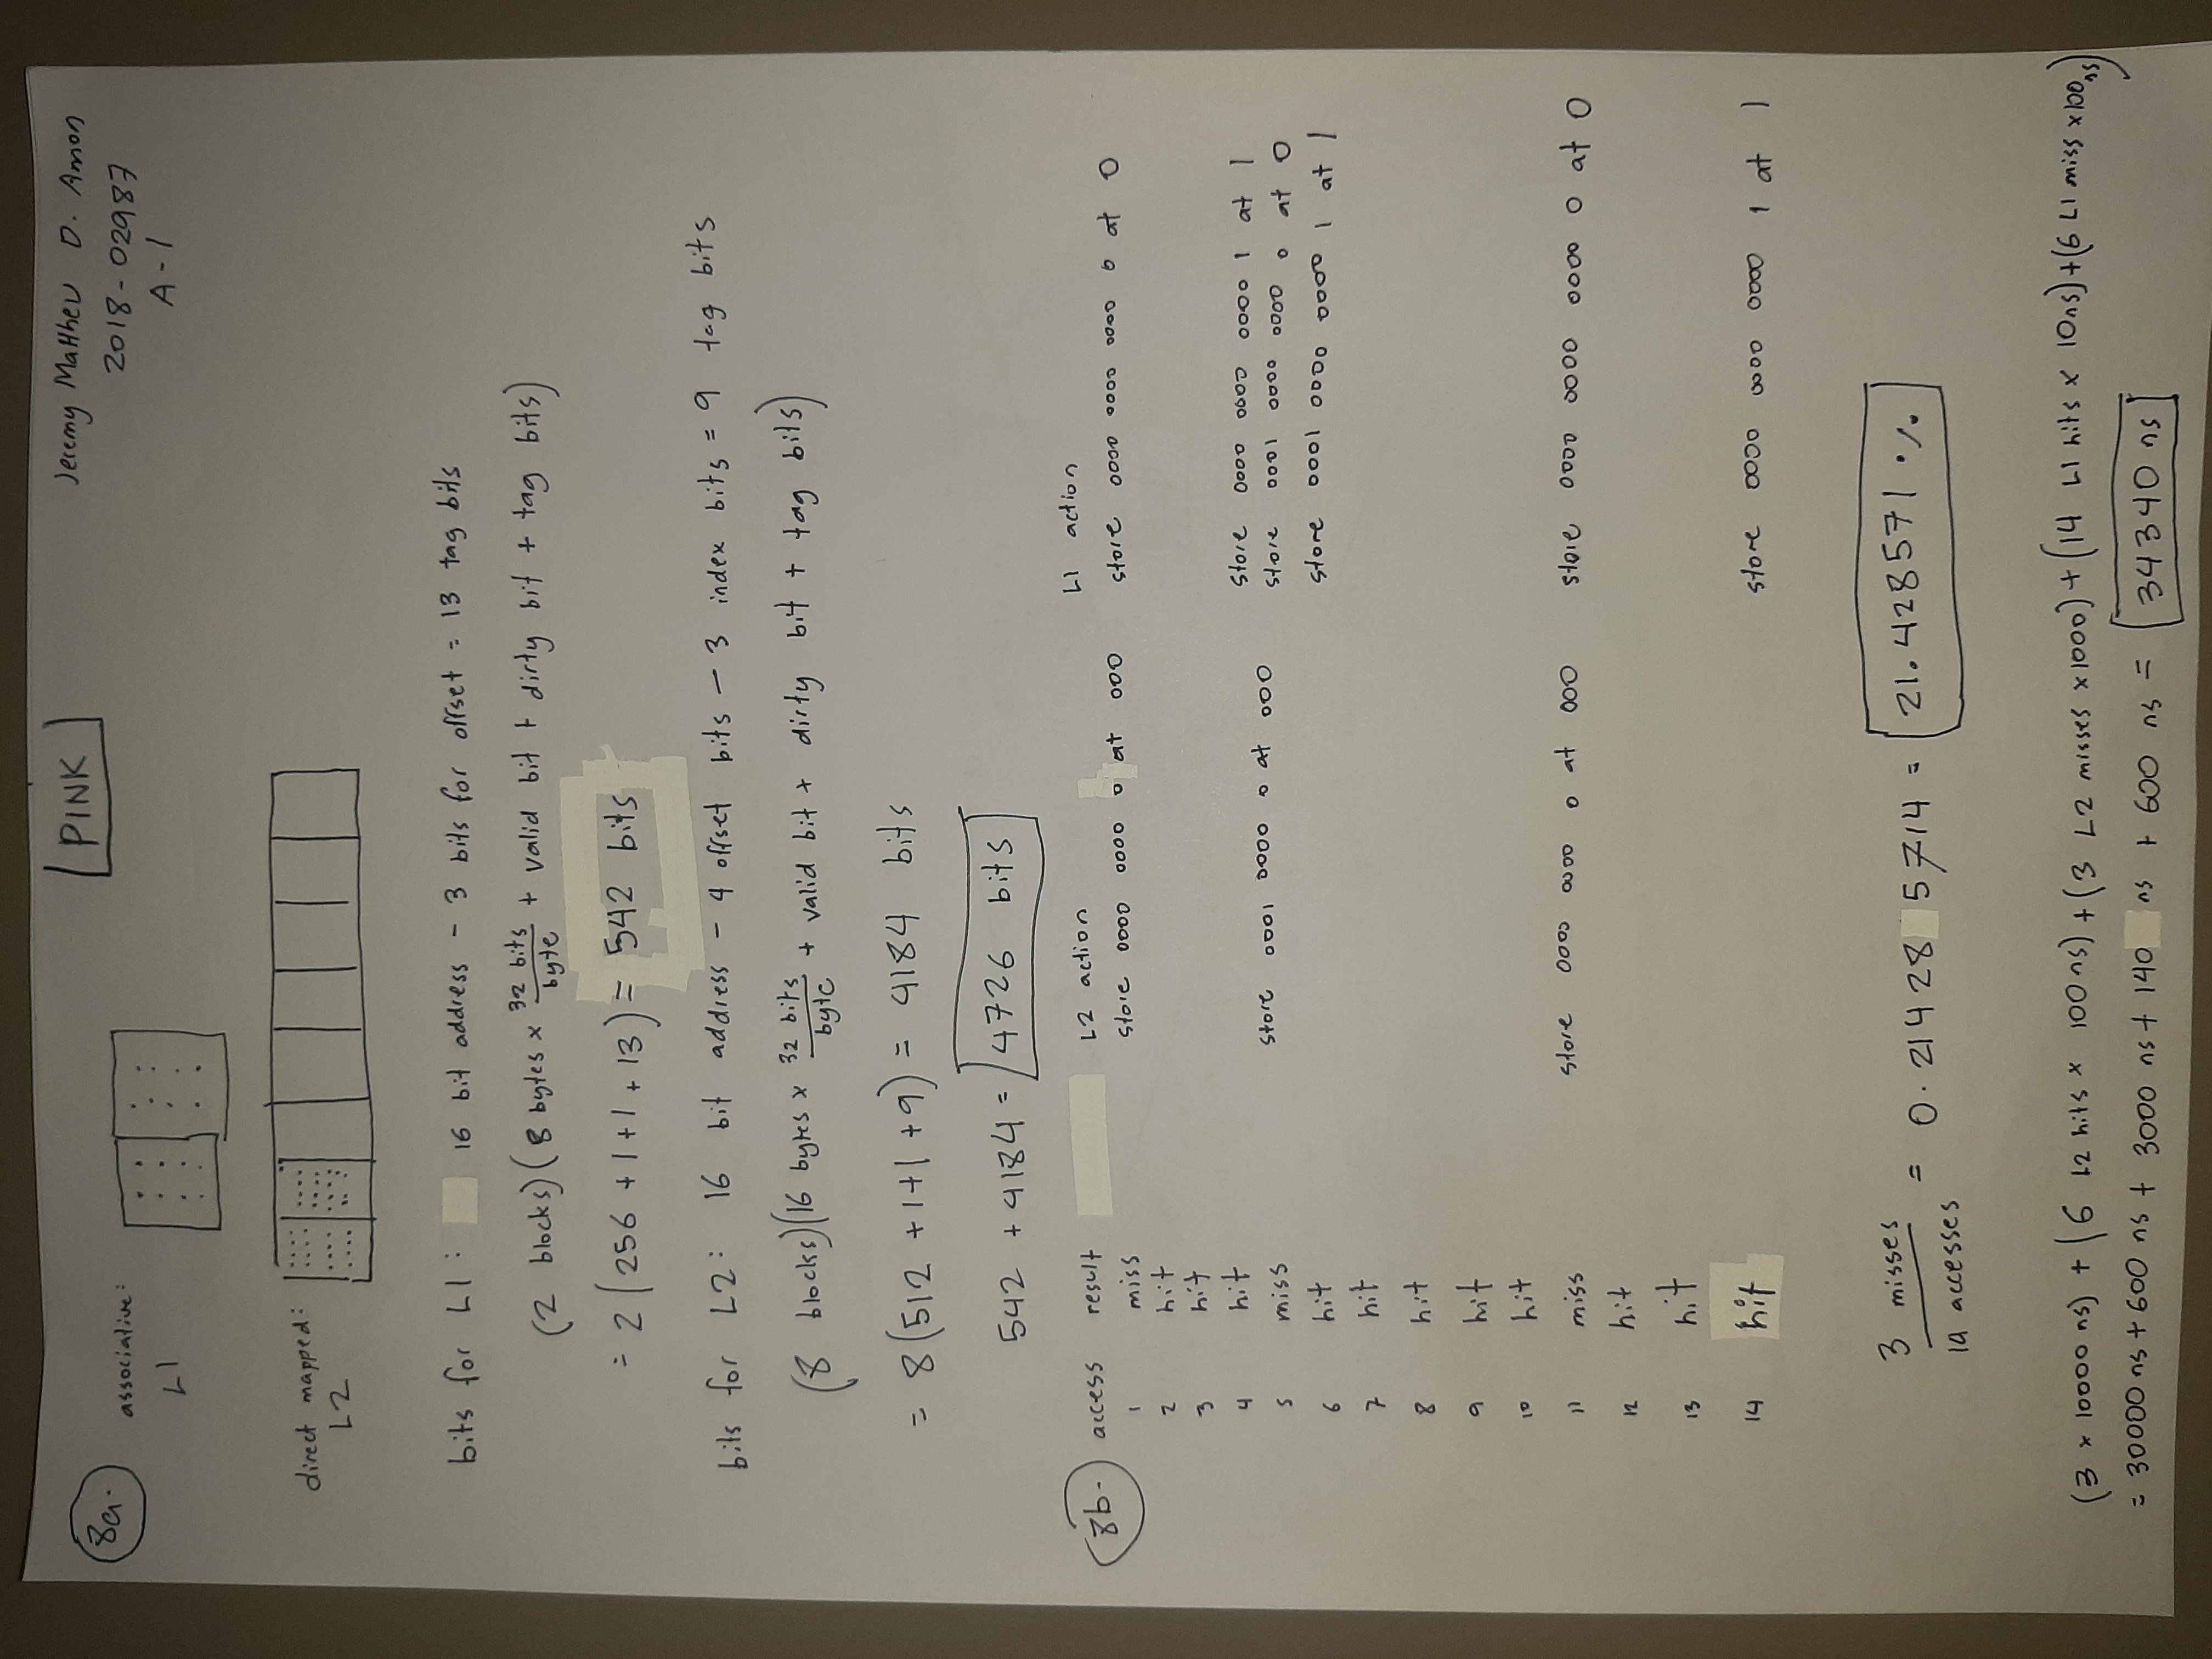 PINK
Jeremy Matthew D. Amon
2018-02987
A-1
8a.
associative:
L1
direct mapped:
L2
bits for L1: 16 bit address - 3 bits for offset = 13 tag bits
(2 blocks)(8 bytes x 32 bits/byte + valid bit + dirty bit + tag bits)
= 2(256 +1+1+13) = 542 bits
bits for L2: 16 bit address - 4 offset bits - 3 index bits = 9 tag bits
(8 blocks)(16 bytes x 32 bits/byte + valid bit + dirty bit + tag bits)
= 8(512 +1+1+9) = 4184 bits
542 + 4184 = 4726 bits
8b. access result L2 action L1 action
1 miss store 0000 0000 0 at 000 store 0000 0000 0000 0 at 0
2 hit
3 hit
4 hit store 0000 0000 0000 1 at 1
5 miss store 0001 0000 0 at 000 store 0001 0000 0000 0 at 0
6 hit store 0001 0000 0000 1 at 1
7 hit
8 hit
9 hit
10 hit
11 miss store 0000 0000 0 at 000 store 0000 0000 0000 0 at 0
12 hit
13 hit
14 hit store 0000 0000 0000 1 at 1
3 misses
14 accesses
= 0.21428 5714 = 21.428571 %
(3 x 10000 ns) + (6 L2 hits x 100ns) + (3 L2 misses x1000) + (14 L1 hits x 10ns)+(6 L1 miss x100ns)
= 30000 ns + 600 ns + 3000 ns + 140 ns + 600 ns = 34340 ns